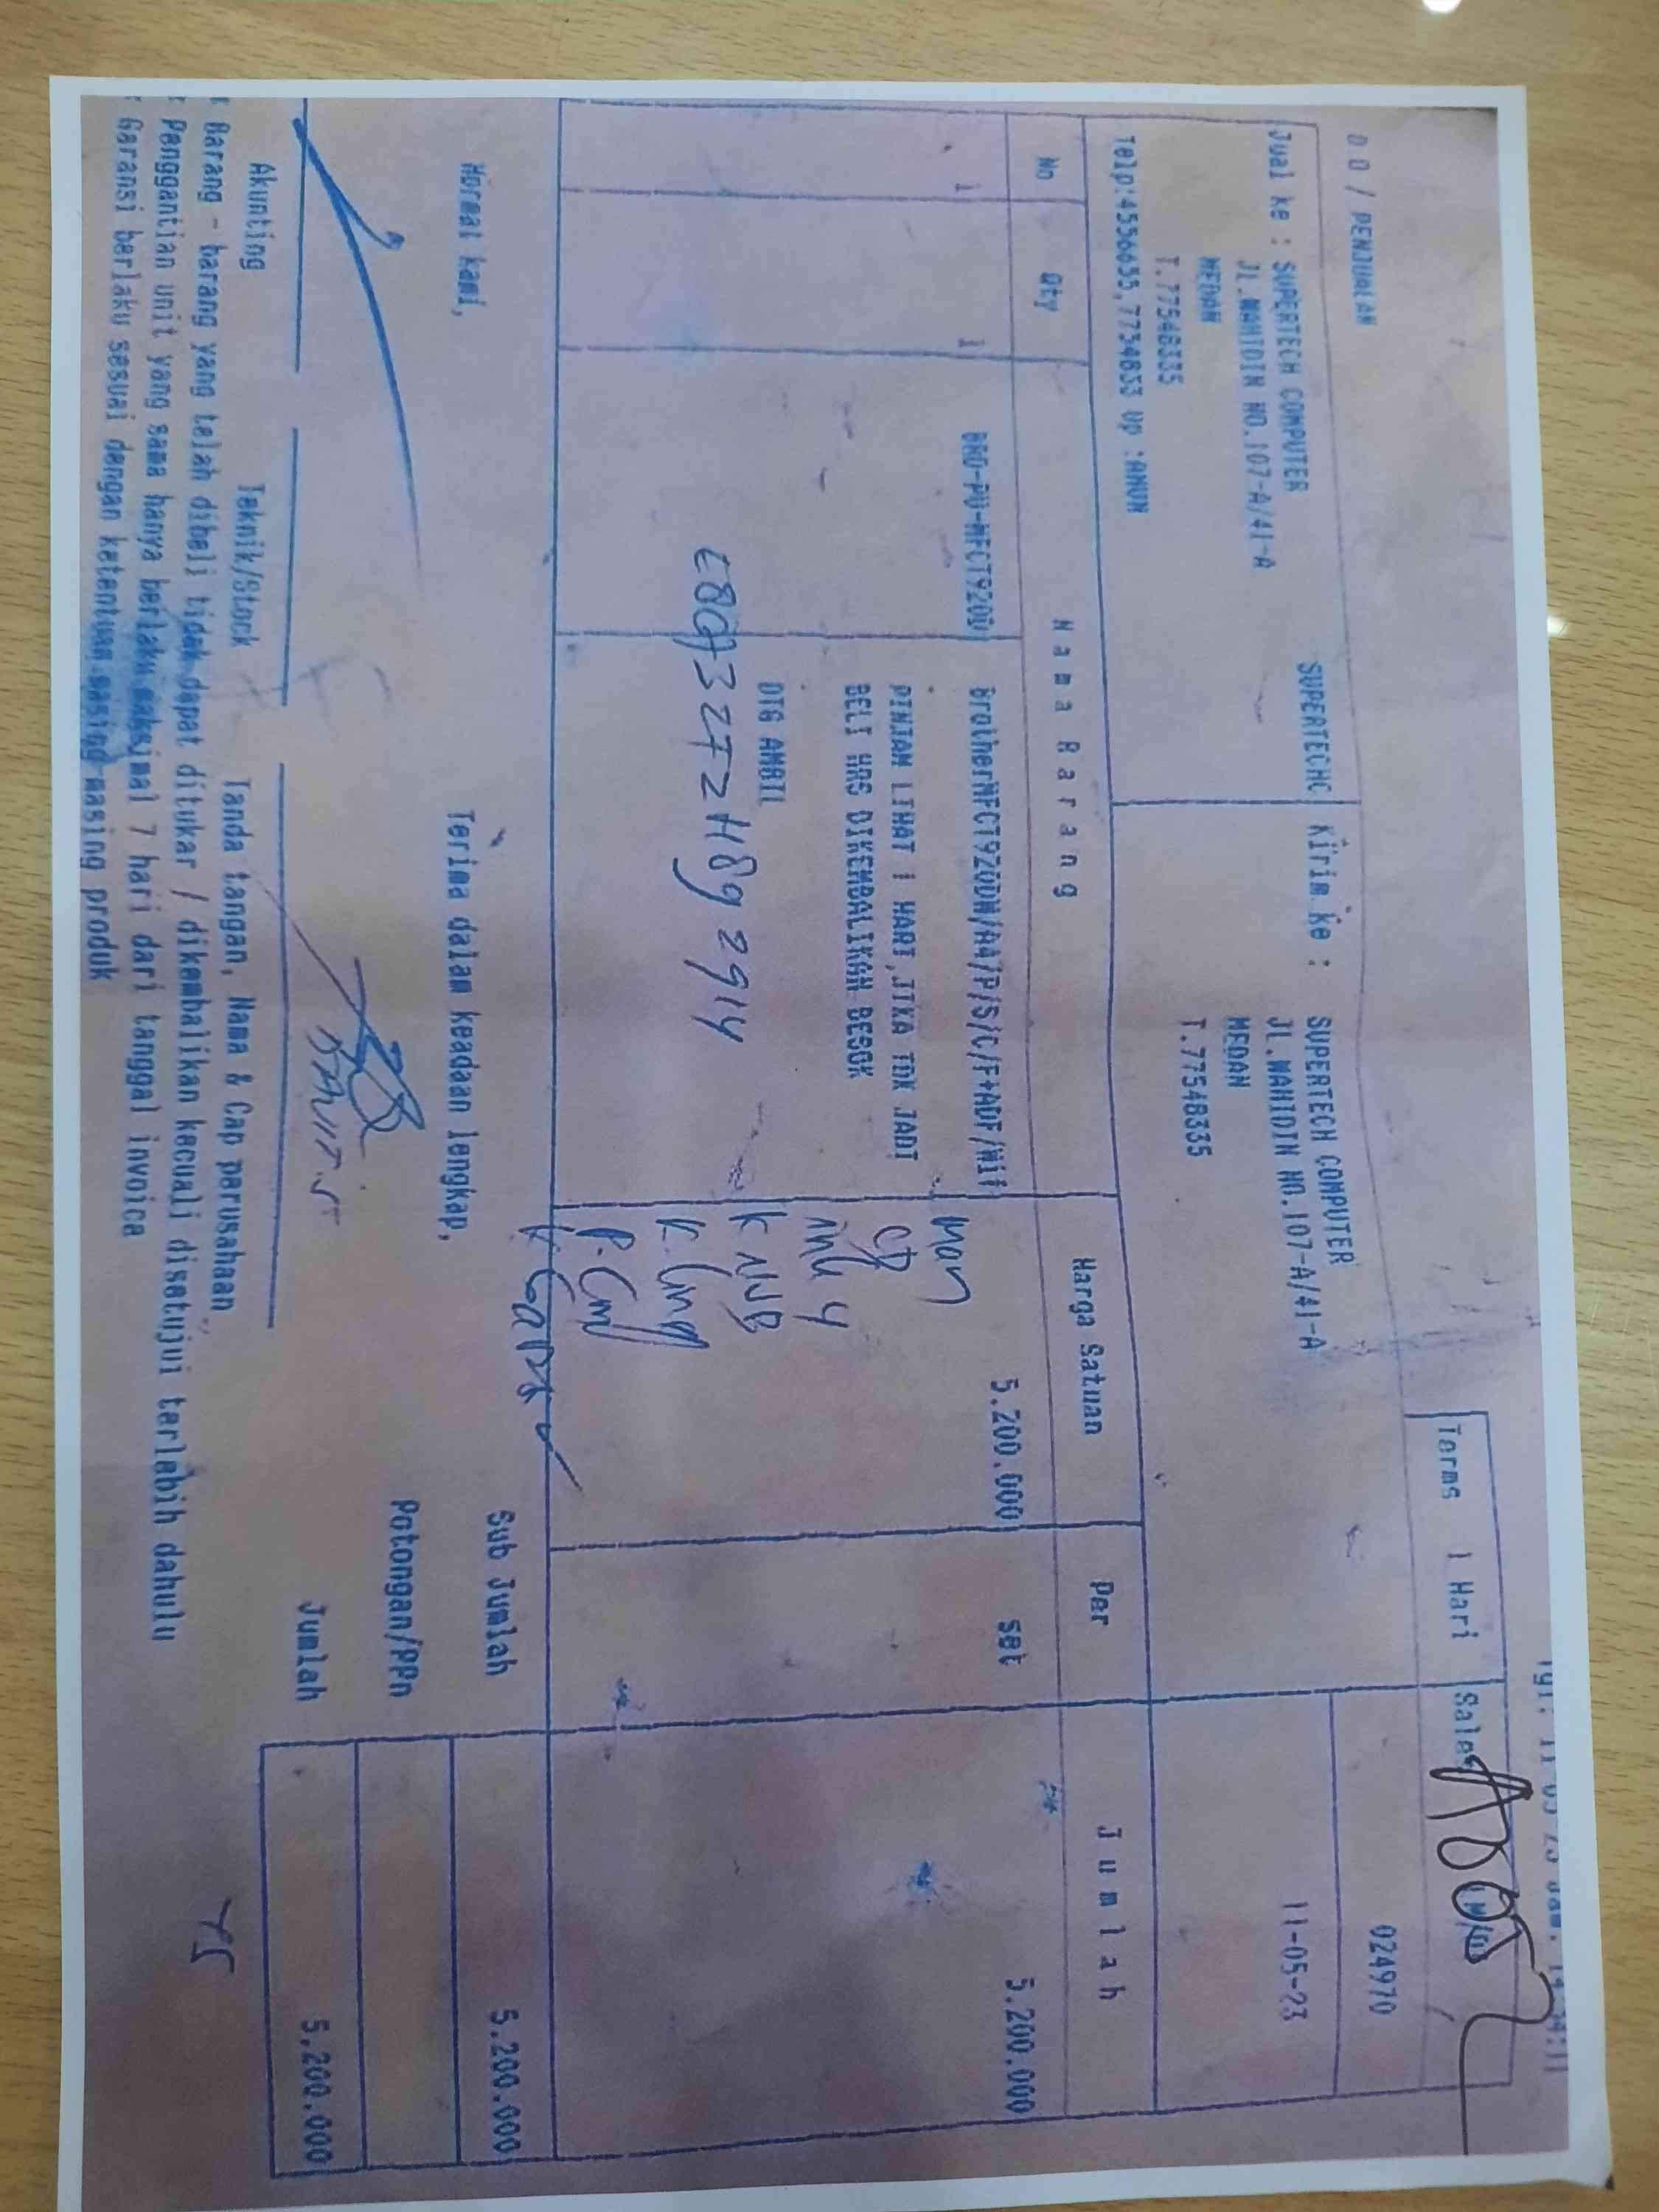 D O / PENJUALAN
Terms 1 Hari Sales
Jual ke : SUPERTECH COMPUTER SUPERTECHC
JL.WAHIDIN NO.107-A/41-A
MEDAN
T.77548335
Telp:4556655,7754833 Up :AHUN
Kirim ke : SUPERTECH COMPUTER
JL.WAHIDIN NO.107-A/41-A
MEDAN
T.77548335
024970
11-05-23
No Qty Nama Barang Harga Satuan Per Jumlah
1 1 BRO-PO-MFCT920D BrotherMFCT920DW/A4/P/S/C/F+ADF/Wif 5.200.000 set 5.200.000
PINJAM LIHAT 1 HARI,JIKA TDK JADI
BELI HRS DIKEMBALIKAN BESOK
DTG AMBIL
Hormat kami,
Terima dalam keadaan lengkap,
Sub Jumlah 5.200.000
Potongan/PPn
Jumlah 5.200.000
Akunting Teknik/Stock Tanda tangan, Nama & Cap perusahaan
Barang - barang yang telah dibeli tidak dapat ditukar / dikembalikan kecuali disetujui terlebih dahulu
Penggantian unit yang sama hanya berlaku maksimal 7 hari dari tanggal invoice
Garansi berlaku sesuai dengan ketentuan masing masing produk